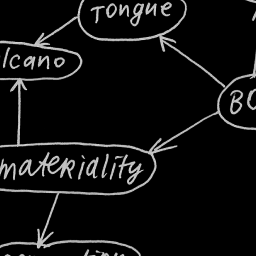 Tongue
lcano
BO
materiality